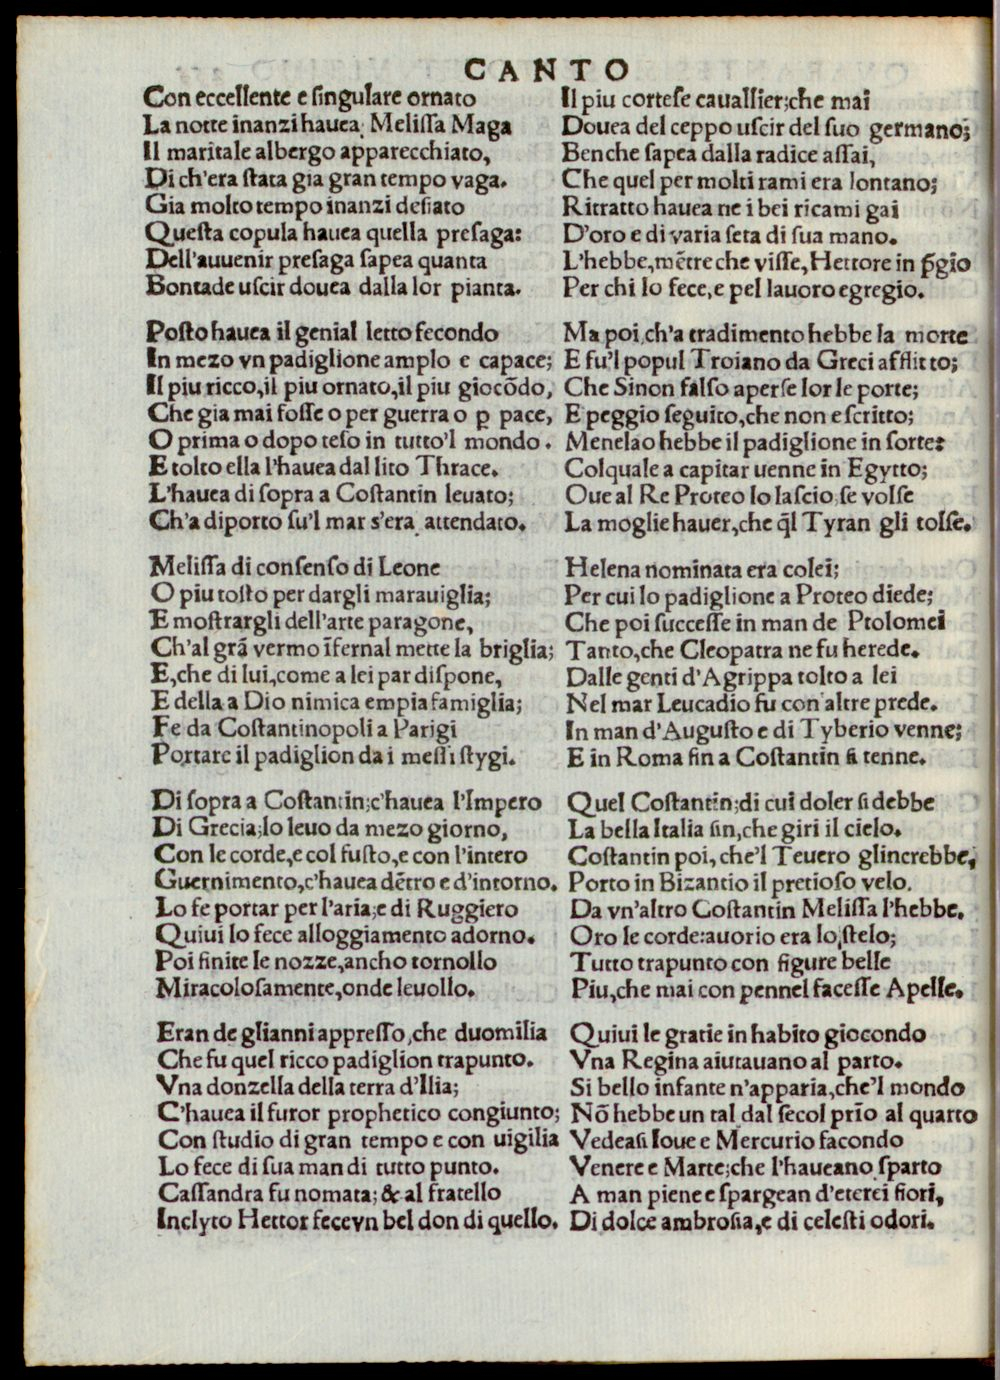 CANTO
Con eccellente e ſingulare ornato
La notte inanzi hauea Meliſſa Maga
Il maritale albergo apparecchiato,
Di ch'era ſtata gia gran tempo vaga.
Gia molto tempo inanzi deſiato
Queſta copula hauea quella preſaga:
Dell'auuenir preſaga ſapea quanta
Bontade uſcir douea dalla lor pianta.
Poſto hauea il genial letto fecondo
In mezo vn padiglione amplo e capace;
Il piu ricco, il piu ornato, il piu giocõdo,
Che gia mai foſſe o per guerra o ꝑ pace,
O prima o dopo teſo in tutto'l mondo.
E tolto ella l'hauea dal lito Thrace.
L'hauea di ſopra a Coſtantin leuato;
Ch'a diporto ſu'l mar s'era attendato.
Meliſſa di conſenſo di Leone
O piu toſto per dargli marauiglia;
E moſtrargli dell'arte paragone,
Ch'al grã vermo ĩfernal mette la briglia;
E, che di lui, come a lei par diſpone,
E della a Dio nimica empia famiglia;
Fe da Coſtantinopoli a Parigi
Portare il padiglion da i meſſi ſtygi.
Di ſopra a Coſtantin; c'hauea l'Impero
Di Grecia; lo leuo da mezo giorno,
Con le corde, e col fuſto, e con l'intero
Guernimento, c'hauea dẽtro e d'intorno.
Lo fe portar per l'aria; e di Ruggiero
Quiui lo fece alloggiamento adorno.
Poi finite le nozze, ancho tornollo
Miracoloſamente, onde leuollo.
Eran de glianni appreſſo, che duomilia
Che fu quel ricco padiglion trapunto.
Vna donzella della terra d'Ilia;
C'hauea il furor prophetico congiunto;
Con ſtudio di gran tempo e con uigilia
Lo fece di ſua man di tutto punto.
Caſſandra fu nomata; & al fratello
Inclyto Hettor fece vn bel don di quello.
Il piu corteſe cauallier; che mai
Douea del ceppo uſcir del ſuo germano;
Benche ſapea dalla radice aſſai,
Che quel per molti rami era lontano;
Ritratto hauea ne i bei ricami gai
D'oro e di varia ſeta di ſua mano.
L'hebbe, mẽtre che viſſe, Hettore in p̃gio
Per chi lo fece, e pel lauoro egregio.
Ma poi, ch'a tradimento hebbe la morte
E fu'l popul Troiano da Greci afflitto;
Che Sinon falſo aperſe lor le porte;
E peggio ſeguito, che non e ſcritto;
Menelao hebbe il padiglione in ſorte:
Colquale a capitar uenne in Egytto;
Oue al Re Proteo lo laſcio, ſe volſe
La moglie hauer, che q̃l Tyran gli tolſe.
Helena nominata era colei;
Per cui lo padiglione a Proteo diede;
Che poi ſucceſſe in man de Ptolomei
Tanto, che Cleopatra ne fu herede.
Dalle genti d'Agrippa tolto a lei
Nel mar Leucadio fu con altre prede.
In man d'Auguſto e di Tyberio venne;
E in Roma fin a Coſtantin ſi tenne.
Quel Coſtantin; di cui doler ſi debbe
La bella Italia ſin, che giri il cielo.
Coſtantin poi, che'l Teuero glincrebbe,
Porto in Bizantio il pretioſo velo.
Da vn'altro Coſtantin Meliſſa l'hebbe.
Oro le corde: auorio era lo ſtelo;
Tutto trapunto con figure belle
Piu, che mai con pennel faceſſe Apelle.
Quiui le gratie in habito giocondo
Vna Regina aiutauano al parto.
Si bello infante n'apparia, che'l mondo
Nõ hebbe un tal dal ſecol prĩo al quarto
Vedeaſi Ioue e Mercurio facondo
Venere e Marte; che l'haueano ſparto
A man piene e ſpargean d'eterei fiori,
Di dolce ambroſia, e di celeſti odori.